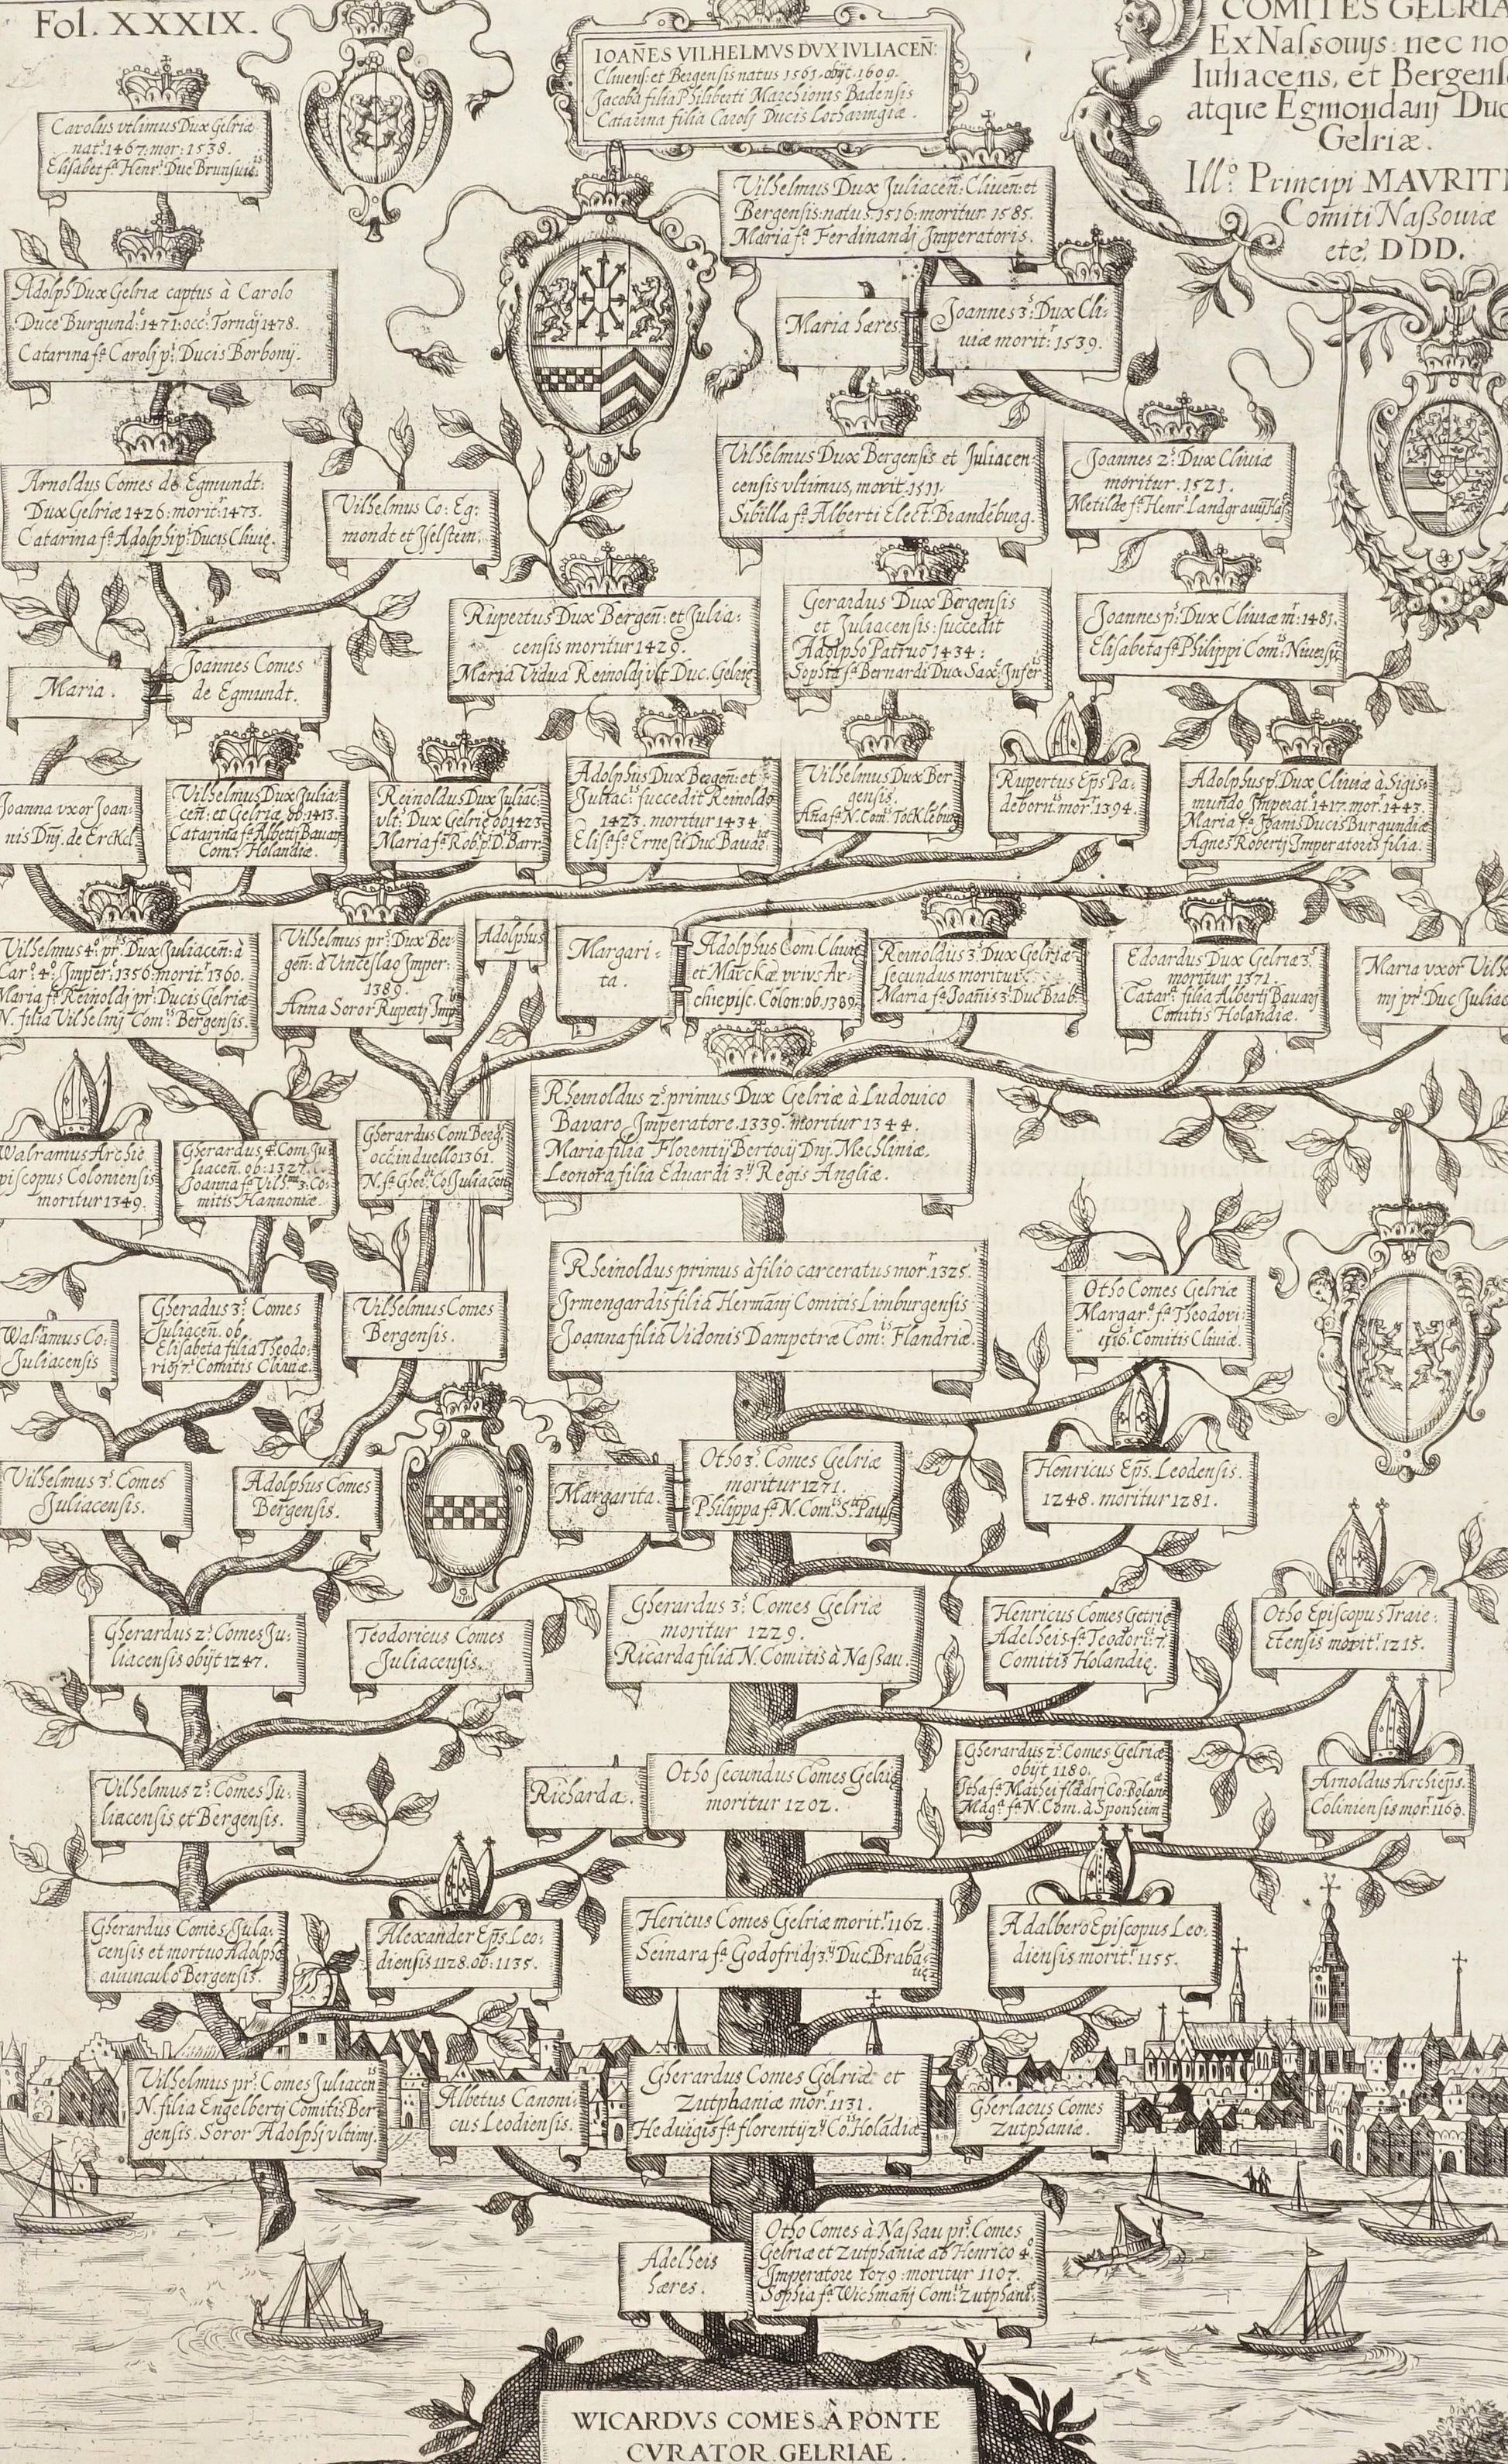 Fol. XXXIX.
IOAÑES VILHELMVS DVX IVLIACEÑ:
Clivens: et Bergensis natus 1561. obijt. 1609.
Jacoba filia Philiberti Marchionis Badensis
Catarina filia Carolj Ducis Lotharingiæ.
COMITES GELRIA
Ex Naſsouijs: nec no
Iuliacens, et Bergens
atque Egmondanj Duc
Gelriæ.
Ill.º Principi MAVRITI
Comiti Naßouiæ
etc. DDD.
Carolus vltimus Dux Gelriæ
nat: 1467. mor: 1538.
Elisabet fª Henrⁱ Duc Brunsuic
Vilhelmus Dux Juliaceñ: Cliuen: et
Bergensis: natus 1516: moritur 1585.
Maria fª Ferdinandj Imperatoris.
Adolph Dux Gelriæ captus à Carolo
Duce Burgund: 1471: occ: Tornaj 1478.
Catarina fª Carolj pⁱ Ducis Borbonij.
Maria hæres
Joannes 3ˢ Dux Cli-
uiæ morit: 1539.
Arnoldus Comes de Egmundt:
Dux Gelriæ 1426: morit: 1473.
Catarina fª Adolphi pⁱ Ducis Cliuię.
Vilhelmus Co: Eg:
mondt et Jſselstein:
Vilhelmus Dux Bergensis et Juliacen
censis vltimus, morit. 1511.
Sibilla fª Alberti Elect. Brandeburg.
Joannes 2ˢ Dux Cliuiæ
moritur. 1521.
Metildæ fª Henrⁱ Landgrauij Haſs
Rupertus Dux Bergeñ: et Julia:
censis moritur 1429.
Maria Vidua Reinoldj vlt Duc. Gelrię
Gerardus Dux Bergensis
et Juliacensis: succedit
Adolpho Patruo 1434:
Sophia fª Bernardi Dux Sax: Infer
Joannes pˢ Dux Cliuiæ m: 1481.
Elisabeta fª Philippi Com: Niuersij
Maria.
Joannes Comes
de Egmundt.
Joanna vxor Joan-
nis Dnj. de Erckel
Vilhelmus Dux Julia:
ceñ: et Gelriæ, ob: 1413.
Catarina fª Albertj Bauarj
Com: Holandiæ.
Reinoldus Dux Juliac:
vlt: Dux Gelrię ob 1423
Maria fª Rob: pⁱ D. Barr
Adolphus Dux Bergeñ: et
Juliac: succedit Reinoldo
1423. moritur 1434
Elisᵃ fª Ernesti Duc Bauar:
Vilhelmus Dux Ber-
gensis.
Ana fª N. Com: Tockleburg
Rupertus Eps Pa-
deborn: mor: 1394.
Adolphus pˢ Dux Cliuiæ à Sigis-
mundo Imperat. 1417. mor. 1443.
Maria fª Joanis Ducis Burgundiæ
Agnes Robertj Imperatoris filia.
Vilhelmus 4ˢ prˢ Dux Juliaceñ: à
Carº 4º Imper: 1356. morit: 1360.
Maria fª Reinoldj prⁱ Ducis Gelriæ
N. filia Vilhelmj Com: Bergensis.
Vilhelmus prˢ Dux Ber-
gen: à Vinceslao Imper:
1389.
Anna Soror Rupertj Imp
Adolphus
Margari-
ta.
Adolphus Com Cliuię
et Marckæ prius Ar-
chiepisc. Colon: ob. 1389.
Reinoldus 3ˢ Dux Gelriæ
secundus moritur
Maria fª Joanis 3ⁱ Duc Brab:
Edoardus Dux Gelriæ 3ˢ
moritur 1371.
Catarª filia Albertj Bauarj
Comitis Holandiæ.
Maria vxor Vilhel
mj prⁱ Duc: Juliac
Rheinoldus 2ˢ primus Dux Gelriæ à Ludouico
Bavaro Imperatore. 1339. moritur 1344.
Maria filia Florentij Bertoij Dnj. Mechliniæ.
Leonora filia Eduardi 3ij Regis Angliæ.
Walramus Archie
piscopus Coloniensis
moritur 1349.
Gherardus 4ˢ Com Ju
liaceñ. ob: 1327.
Joanna fª Vilhᵐ 3. Co-
mitis Hannoniæ.
Gherardus Com Berg:
occ: in duello 1361.
N. fª Gher: Co: Juliaceñ
Rheinoldus primus à filio carceratus morʳ 1325.
Irmengardis filia Hermanj Comitis Limburgensis
Joanna filia Vidonis Dampetræ Com: Flandriæ.
Otho Comes Gelriæ
Margarª fª Theodori
Comitis Cliuiæ.
Walamus Co:
Juliacensis
Gheradus 3ˢ Comes
Juliaceñ. ob.
Elisabeta filia Theodo-
rici 7ⁱ Comitis Cliuiæ.
Vilhelmus Comes
Bergensis.
Vilhelmus 3ˢ Comes
Juliacensis.
Adolphus Comes
Bergensis.
Margarita.
Otho 3ˢ Comes Gelriæ
moritur 1271.
Philippa fª N. Com: Sᵗⁱ Pauli
Henricus Eps. Leodensis.
1248. moritur 1281.
Gherardus 2ˢ Comes Ju:
liacensis obijt 1247.
Teodoricus Comes
Juliacensis.
Gherardus 3ˢ Comes Gelriæ
moritur 1229.
Ricarda filia N. Comitis à Naſsau.
Henricus Comes Gelrię
Adelheis fª Teodori: 7.
Comitis Holandię.
Otho Episcopus Traie-
ctensis morit: 1215.
Vilhelmus 2ˢ Comes Ju:
liacensis et Bergensis.
Richarda.
Otho secundus Comes Gelrię
moritur 1202.
Gherardus 2ˢ Comes Gelriæ
obijt 1180.
Magª fª N. Com. à Sponheim
Arnoldus Archieps.
Coliniensis morʳ 1163.
Gherardus Comes Julia:
censis et mortuo Adolpho
auunculo Bergensis.
Alexander Eps Leo:
diensis 1128. ob: 1135.
Hericus Comes Gelriæ moritʳ 1162.
Seinara fª Godofridj 3ij Duc Brabã-
tię
Adalbero Episcopus Leo-
diensis moritʳ 1155.
Vilhelmus prˢ Comes Juliaceñ
N. filia Engelbertj Comitis Ber
gensis. Soror Adolphj vltimj.
Albetus Canoni-
cus Leodiensis.
Gherardus Comes Gelriæ et
Zutphaniæ morʳ 1131.
Heduigis fª florentij 2ij Co: Holãdiæ
Gherlacus Comes
Zutphaniæ.
Adelheis
hæres.
Otho Comes à Naßau prˢ Comes
Gelriæ et Zutphaniæ ab Henrico 4º
Imperatore 1079. moritur 1107.
Sophia fª Wichmanj Com: Zutphanię
WICARDVS COMES À PONTE
CVRATOR GELRIAE.